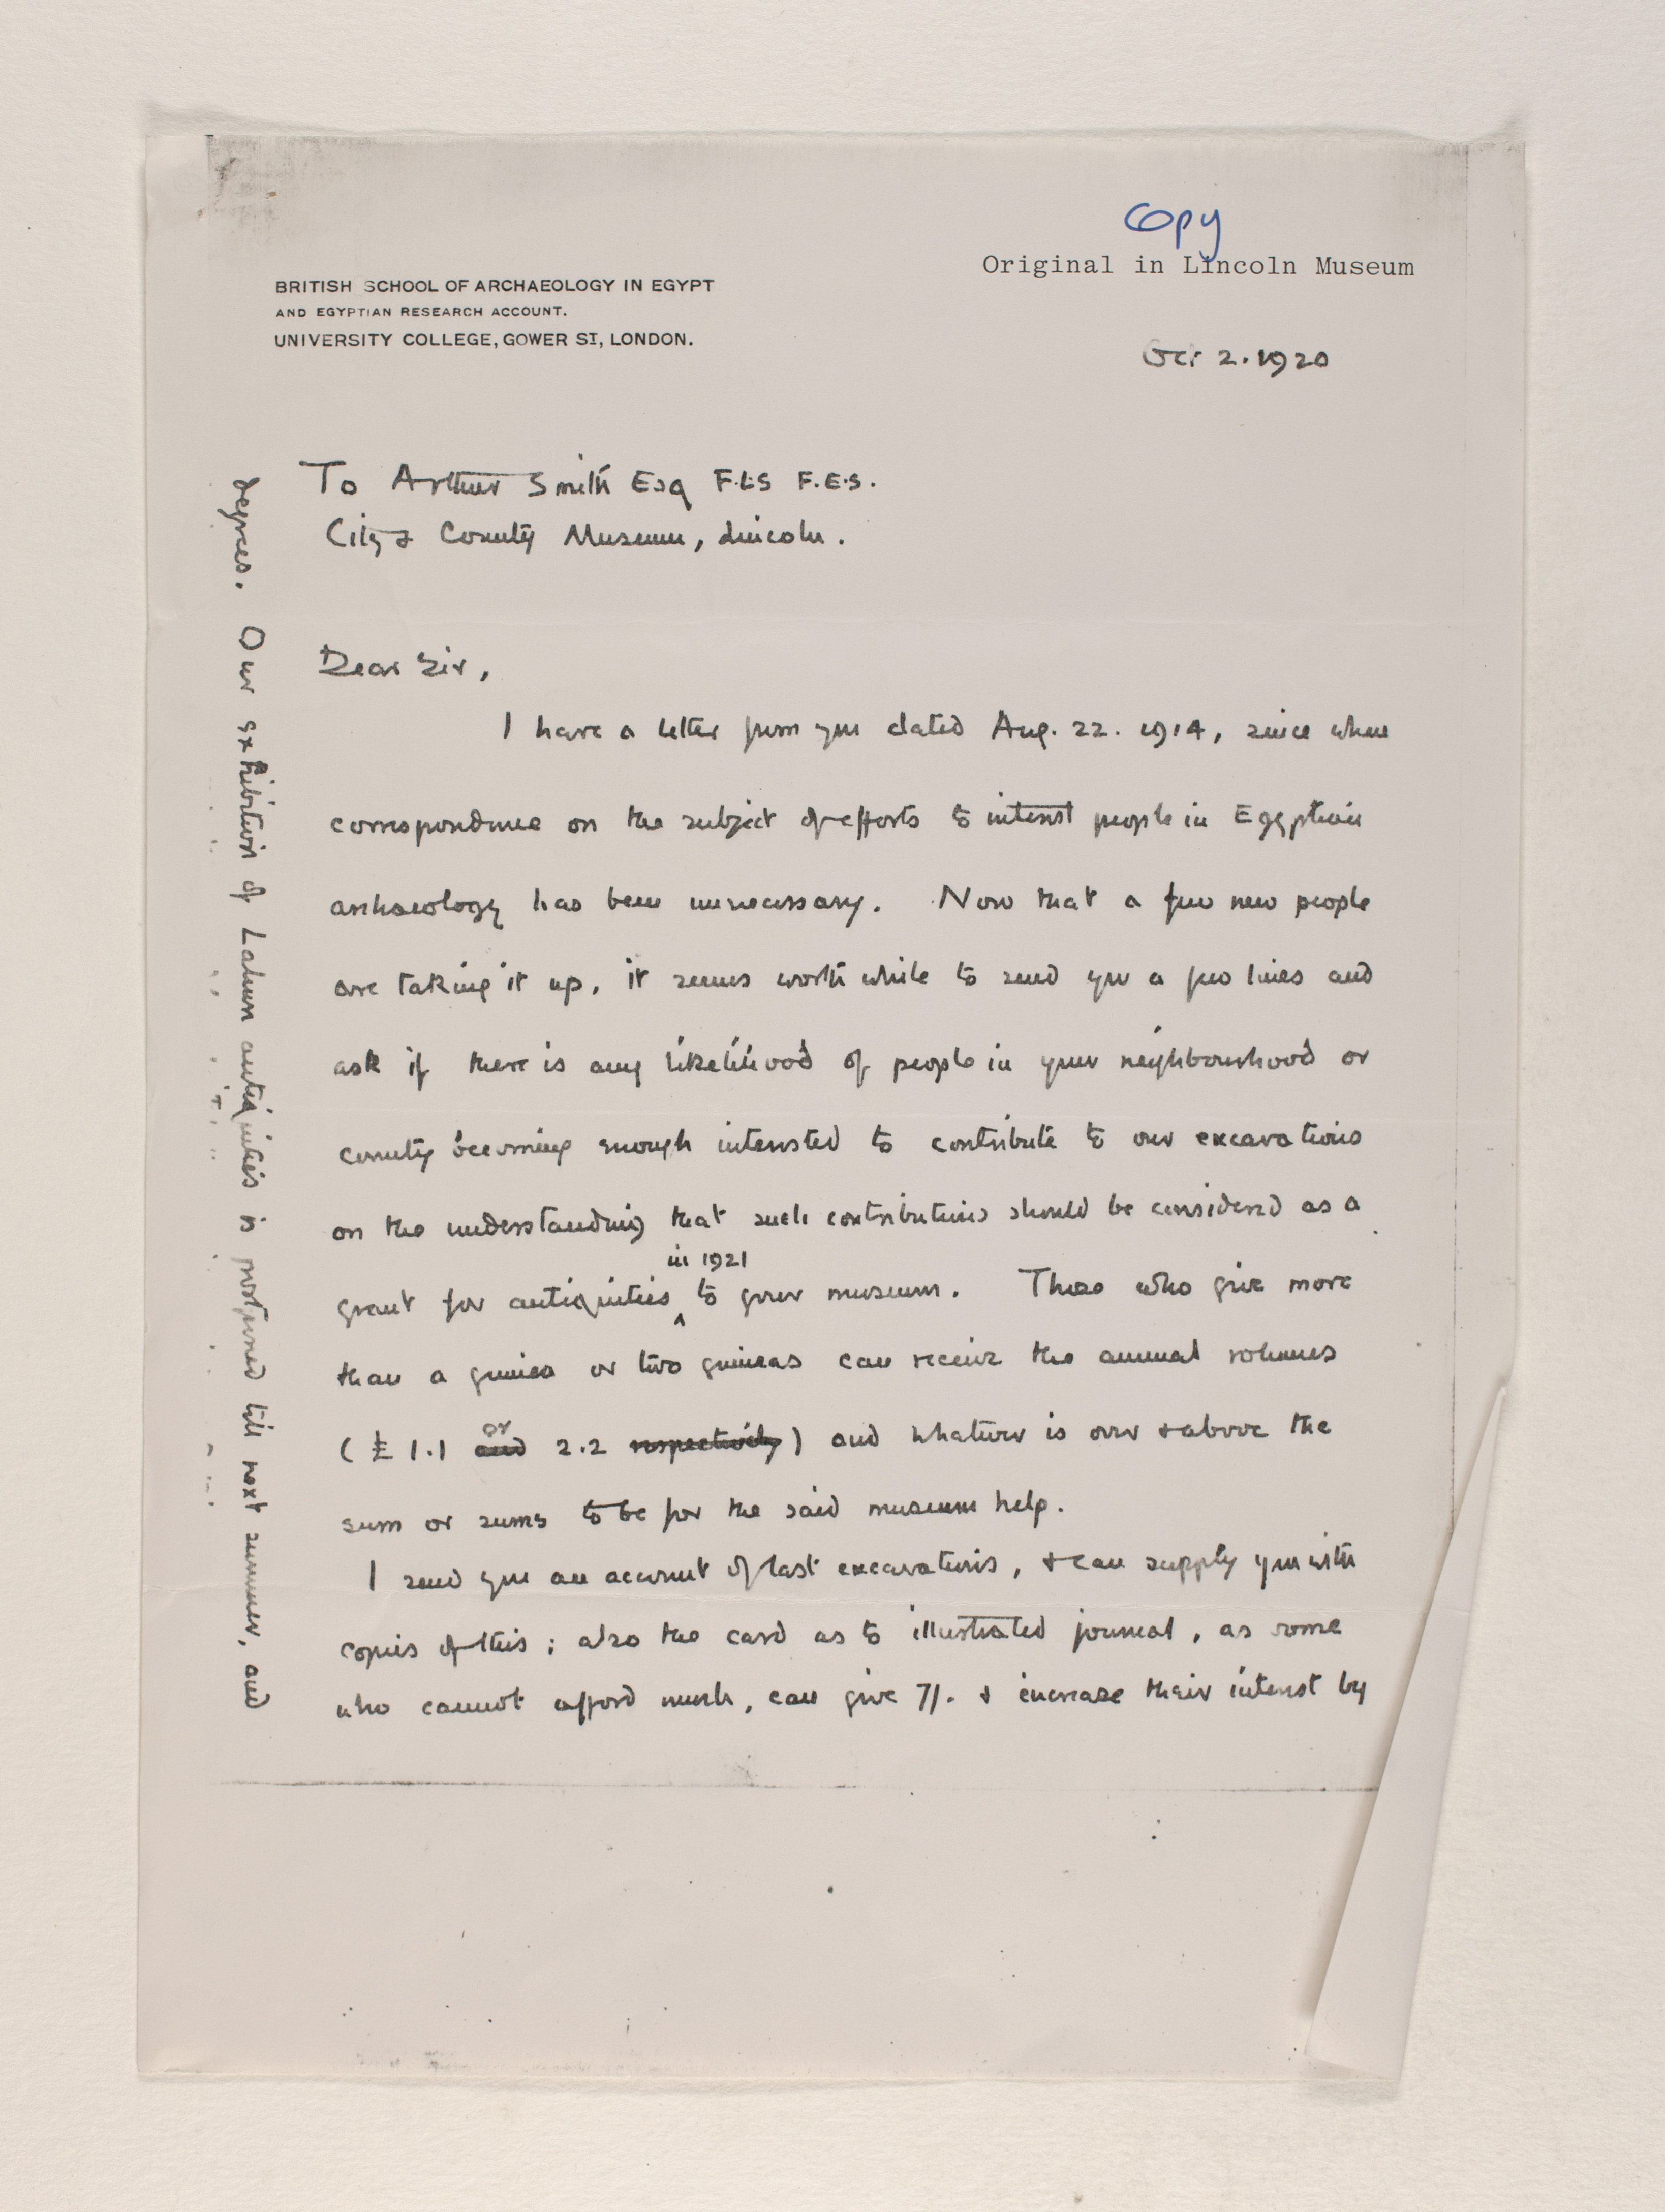 Copy
Original in Lincoln Museum
BRITISH SCHOOL OF ARCHAEOLOGY IN EGYPT
AND EGYPTIAN RESEARCH ACCOUNT.
UNIVERSITY COLLEGE, GOWER ST, LONDON.
Oct 2. 1920
To Arthur Smith Esq F.L.S F.E.S.
City & County Museum, Lincoln.
Dear Sir,
I have a letter from you dated Aug. 22. 1914, since when
correspondence on the subject of efforts to interest people in Egyptian
archaeology has been unnecessary. Now that a few new people
are taking it up, it seems worth while to send you a few lines and
ask if there is any likelihood of people in your neighbourhood or
county becoming enough interested to contribute to our excavations
on the understanding that such contributions should be considered as a
in 1921
grant for antiquities ^ to your museum. Those who give more
than a guinea or two guineas can receive the annual volumes
or
(£ 1.1 and 2.2 respectively) and whatever is over & above the
sum or sums to be for the said museum help.
I send you an account of last excavations, & can supply you with
copies of this; also the card as to illustrated journal, as some
who cannot afford much, can give 7/- & increase their interest by
degrees. Our exhibition of Lahun antiquities is postponed till next summer, and